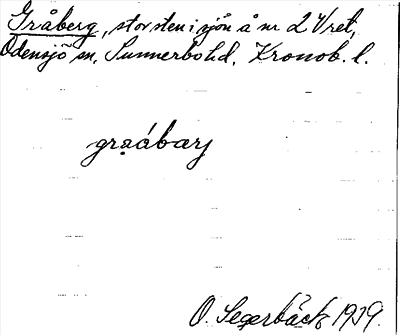 Gråberg, stor sten i sjön å nr 2 Vret,
Odensjö sn, Sunnerbo hd. Kronob. l.
gra̤ábarj
O. Segerbäck 1939.